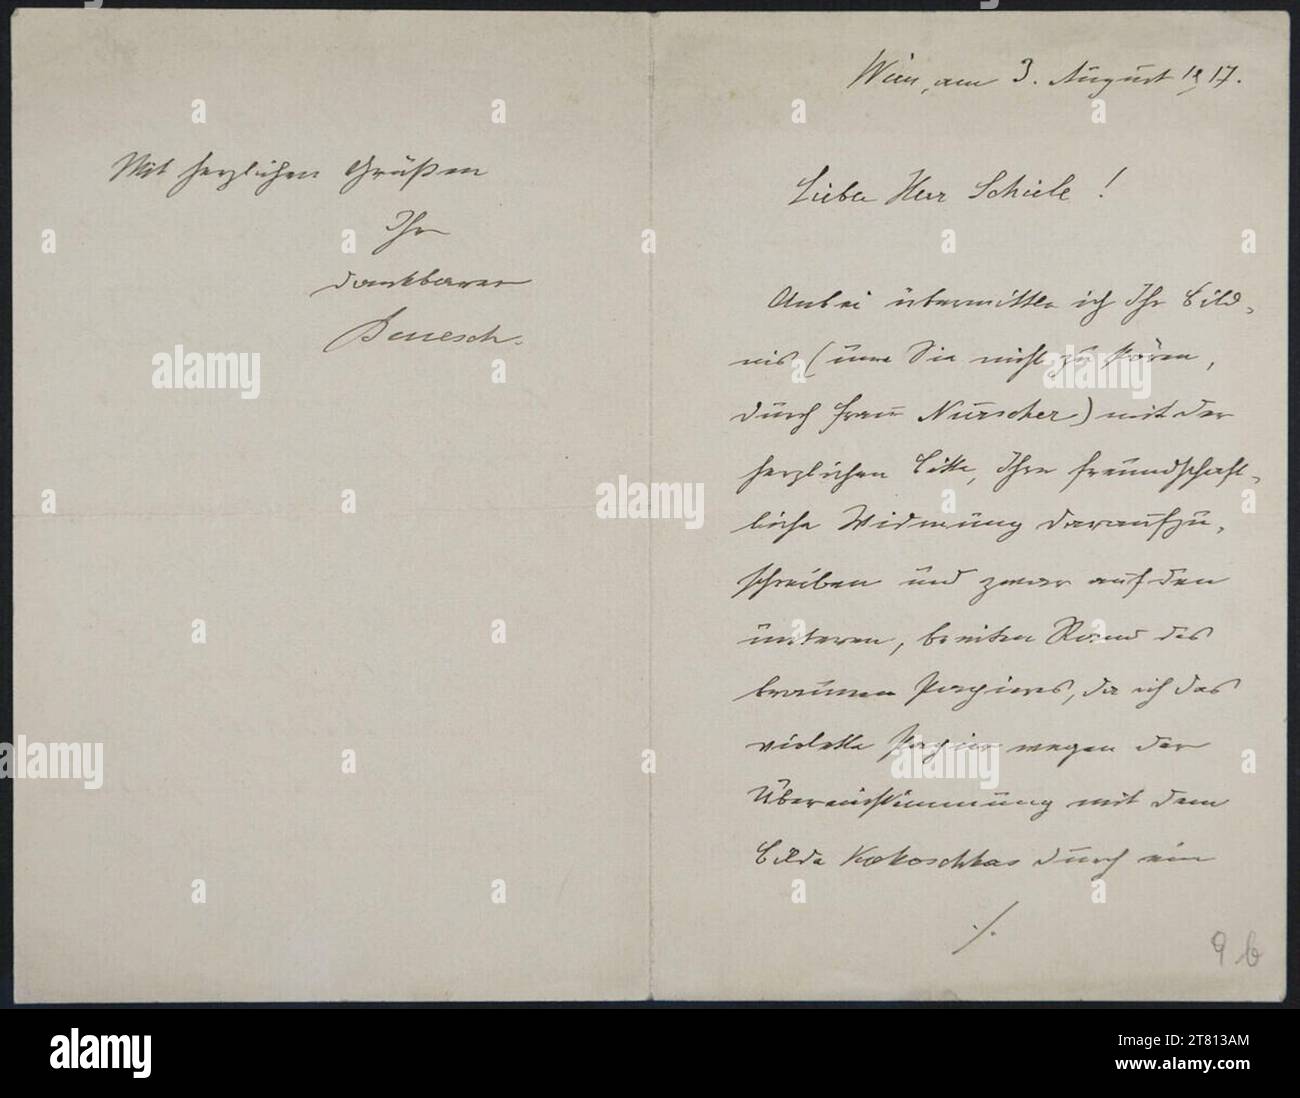 Mit herzlichen Grüßen
Ihr
dankbarer
Benesch.
Wien, am 3. August 1917.
Lieber Herr Schiele!
Anbei übermittle ich Ihr Bild-
nis (um Sie nicht zu stören,
durch Frau Nurscher) mit der
herzlichen Bitte, Ihre freundschaft-
liche Widmung daraufzu-
schreiben und zwar auf den
unteren, breiten Rand des
braunen Papieres, da ich das
violette Papier wegen der
Übereinstimmung mit dem
Bilde Kokoschkas durch ein
./.
9 b
alamy
alamy
Image ID: 2T813AM
www.alamy.com